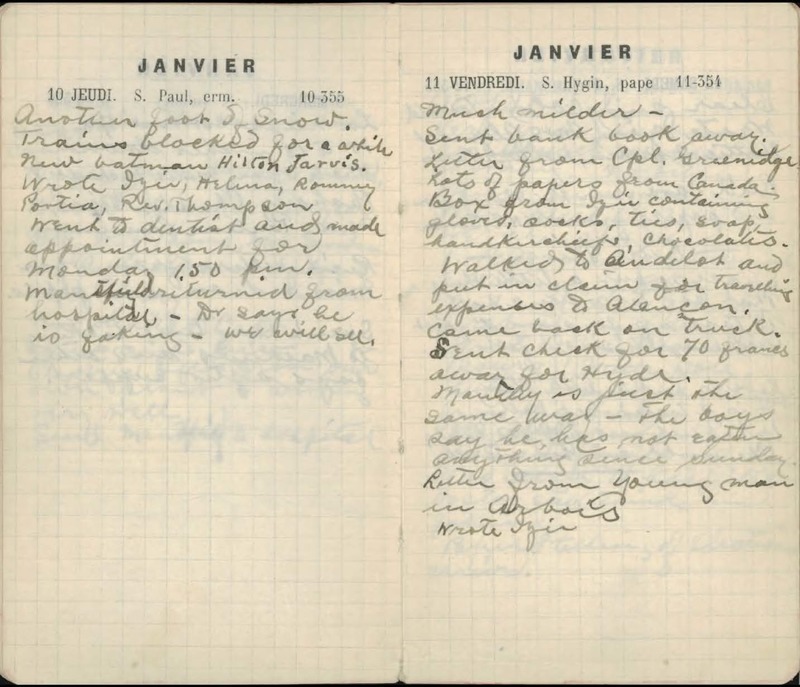 JANVIER
10 JEUDI. S. Paul, erm. 10-355
Another foot of snow.
Trains blocked for a while
New batman Hilton Jarvis.
Wrote Izie, Helena, Rommey
Portia, Rev. Thompson
Went to dentist and made
appointment for
Monday 1.50 p.m.
returned from
hospital - Dr says he
is faking - we will see.
JANVIER
11 VENDREDI. S. Hygin, pape 11-354
Much milder -
Sent bank book away.
Letter from Cpl. Greenidge
Lots of papers from Canada.
Box from Izie containing
gloves, socks, ties, soap
handkerchiefs, chocolates.
Walked to Andelot and
put in claim for travelling
expenses to Alencon.
Came back on truck.
Sent check for 70 francs
away for Hyde.
is just the
same way - the boys
say he has not eaten
anything sence sunday.
Letter from Young man
in Arbois
Wrote Izie